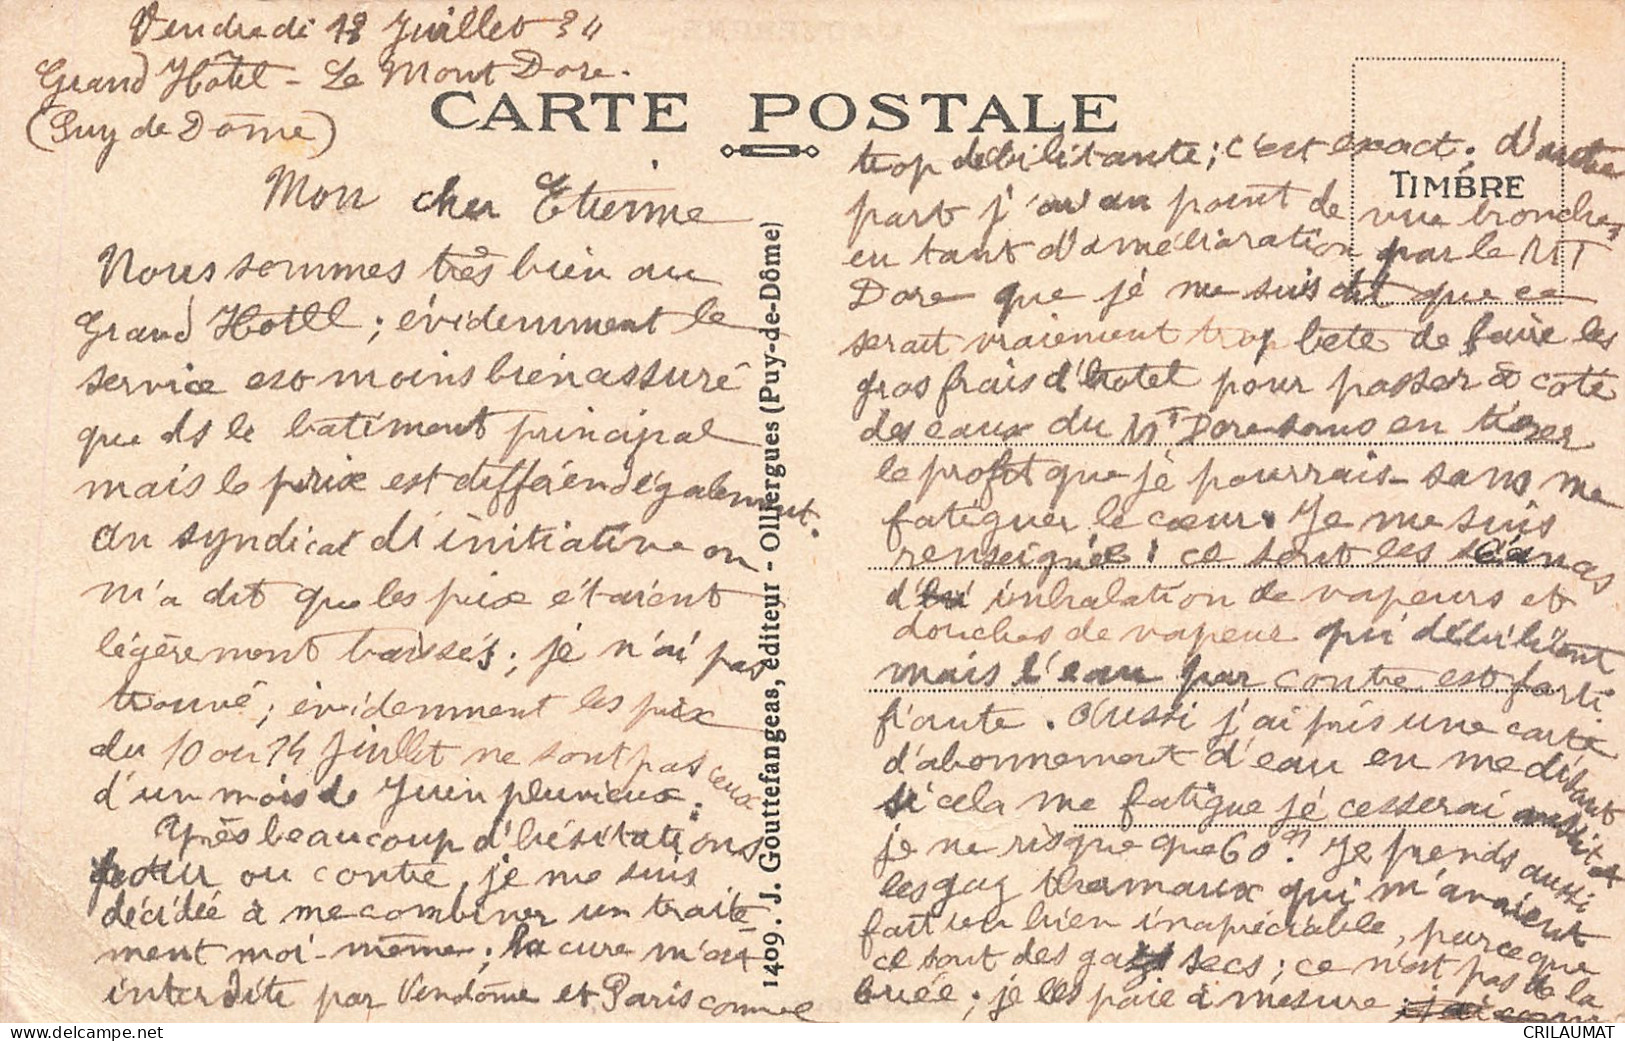 Vendredi 13 Juillet 34
Grand Hôtel - Le Mont Dore.
(Puy de Dôme)
CARTE POSTALE
TIMBRE
Mon cher Etienne
Nous sommes très bien au
Grand Hotel ; évidemment le
service est moins bien assuré
que ds le batiment principal
mais le prix est différend également.
au syndicat d'initiative on
m'a dit que les prix étaient
légèrement baissés ; je n'ai pas
trouvé ; évidemment les prix
du 10 au 14 Juillet ne sont pas ceux
d'un mois de Juin pluvieux.
Après beaucoup d'hésitations
pour ou contre, je me suis
décidée à me combiner un traite-
ment moi-même ; la cure m'est
interdite par Vendôme et Paris comme
1409. J. Gouttefangeas, éditeur - Olliergues (Puy-de-Dôme)
trop débilitante ; c'est exact ; d'autre
part j'ai un point de vue bronches
en tant d'amélioration par le MT
Dore que je me suis dit que ce
serait vraiment trop bete de faire les
gros frais d'hotel pour passer à coté
des eaux du MT Dore sans en tirer
le profit que je pourrais sans me
fatiguer le cœur. Je me suis
renseignée : ce sont les séances
d' inhalation de vapeurs et
douches de vapeur qui débilitent
mais l'eau par contre est forti-
fiante. Aussi j'ai pris une carte
d'abonnement d'eau en me disant
si cela me fatigue je cesserai aussitot
je ne risque que 60 . Je prends aussi
les gaz thermaux qui m'avaient
fait un bien inapréciable, parce que
ce sont des gaz secs ; ce n'est pas de la
buée ; je les paie à mesure ;
CRILAUMAT